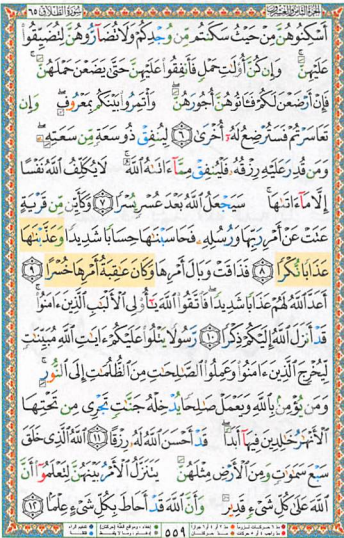 سُورَةُ الطَّلَاقِ ٦٥
أَسْكِنُوهُنَّ مِنْ حَيْثُ سَكَنتُم مِّن وُجْدِكُمْ وَلَا تُضَآرُّوهُنَّ لِتُضَيِّقُوا۟
عَلَيْهِنَّ ۚ وَإِن كُنَّ أُو۟لَٰتِ حَمْلٍ فَأَنفِقُوا۟ عَلَيْهِنَّ حَتَّىٰ يَضَعْنَ حَمْلَهُنَّ ۚ
فَإِنْ أَرْضَعْنَ لَكُمْ فَـَٔاتُوهُنَّ أُجُورَهُنَّ ۖ وَأْتَمِرُوا۟ بَيْنَكُم بِمَعْرُوفٍ ۖ وَإِن
تَعَاسَرْتُمْ فَسَتُرْضِعُ لَهُۥٓ أُخْرَىٰ ٦ لِيُنفِقْ ذُو سَعَةٍ مِّن سَعَتِهِۦ ۖ
وَمَن قُدِرَ عَلَيْهِ رِزْقُهُۥ فَلْيُنفِقْ مِمَّآ ءَاتَىٰهُ ٱللَّهُ ۚ لَا يُكَلِّفُ ٱللَّهُ نَفْسًا
إِلَّا مَآ ءَاتَىٰهَا ۚ سَيَجْعَلُ ٱللَّهُ بَعْدَ عُسْرٍ يُسْرًا ٧ وَكَأَيِّن مِّن قَرْيَةٍ
عَتَتْ عَنْ أَمْرِ رَبِّهَا وَرُسُلِهِۦ فَحَاسَبْنَٰهَا حِسَابًا شَدِيدًا وَعَذَّبْنَٰهَا
عَذَابًا نُّكْرًا ٨ فَذَاقَتْ وَبَالَ أَمْرِهَا وَكَانَ عَٰقِبَةُ أَمْرِهَا خُسْرًا ٩
أَعَدَّ ٱللَّهُ لَهُمْ عَذَابًا شَدِيدًا ۖ فَٱتَّقُوا۟ ٱللَّهَ يَٰٓأُو۟لِى ٱلْأَلْبَٰبِ ٱلَّذِينَ ءَامَنُوا۟ ۚ
قَدْ أَنزَلَ ٱللَّهُ إِلَيْكُمْ ذِكْرًا ١٠ رَّسُولًا يَتْلُوا۟ عَلَيْكُمْ ءَايَٰتِ ٱللَّهِ مُبَيِّنَٰتٍ
لِّيُخْرِجَ ٱلَّذِينَ ءَامَنُوا۟ وَعَمِلُوا۟ ٱلصَّٰلِحَٰتِ مِنَ ٱلظُّلُمَٰتِ إِلَى ٱلنُّورِ ۚ
وَمَن يُؤْمِنۢ بِٱللَّهِ وَيَعْمَلْ صَٰلِحًا يُدْخِلْهُ جَنَّٰتٍ تَجْرِى مِن تَحْتِهَا
ٱلْأَنْهَٰرُ خَٰلِدِينَ فِيهَآ أَبَدًا ۖ قَدْ أَحْسَنَ ٱللَّهُ لَهُۥ رِزْقًا ١١ ٱللَّهُ ٱلَّذِى خَلَقَ
سَبْعَ سَمَٰوَٰتٍ وَمِنَ ٱلْأَرْضِ مِثْلَهُنَّ يَتَنَزَّلُ ٱلْأَمْرُ بَيْنَهُنَّ لِتَعْلَمُوٓا۟ أَنَّ
ٱللَّهَ عَلَىٰ كُلِّ شَىْءٍ قَدِيرٌ وَأَنَّ ٱللَّهَ قَدْ أَحَاطَ بِكُلِّ شَىْءٍ عِلْمًۢا ١٢
٥٥٩